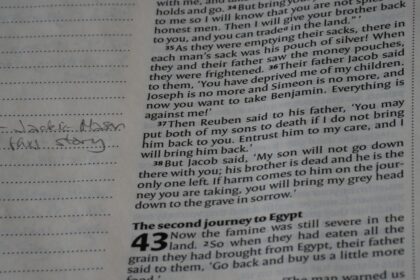 story
holds and go. 34But bring you
to me so I will know that you are not spies
honest men. Then I will give your brother back
to you, and you can trade in the land.”’
35As they were emptying their sacks, there in
each man's sack was his pouch of silver! When
they and their father saw the money pouches,
they were frightened. 36Their father Jacob said
to them, ‘You have deprived me of my children.
Joseph is no more and Simeon is no more, and
now you want to take Benjamin. Everything is
against me!’
37Then Reuben said to his father, ‘You may
put both of my sons to death if I do not bring
him back to you. Entrust him to my care, and I
will bring him back.’
38But Jacob said, ‘My son will not go down
there with you; his brother is dead and he is the
only one left. If harm comes to him on the jour-
ney you are taking, you will bring my grey head
down to the grave in sorrow.’
The second journey to Egypt
43 Now the famine was still severe in the
land. 2So when they had eaten all the
grain they had brought from Egypt, their father
said to them, ‘Go back and buy us a little more